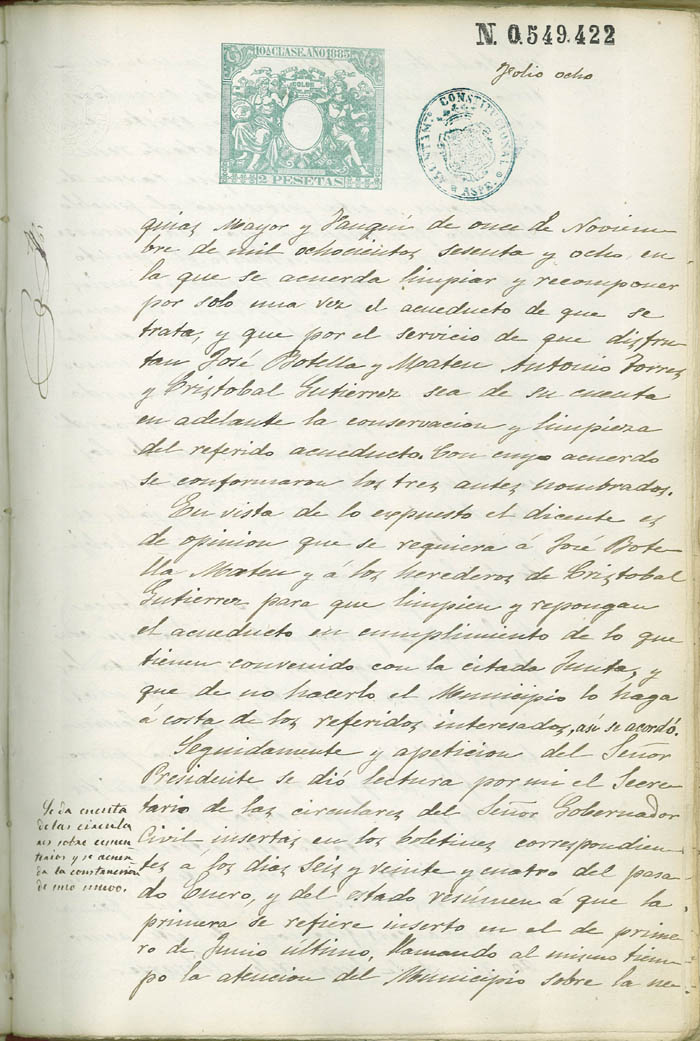 N. 0.549.422
Folio ocho
10ª CLASE. AÑO 1885
2 PESETAS
CONSTITUCIONAL
ASPE.
quias Mayor y Fauquí de once de Noviem-
bre de mil ochocientos sesenta y ocho en
la que se acuerda limpiar y recomponer
por solo una vez el acueducto de que se
trata, y que por el servicio de que disfru-
tan José Botella y Mateu Antonio Torres
y Cristobal Gutierrez sea de su cuenta
en adelante la conservacion y limpieza
del referido acueducto. Con cuyo acuerdo
se conformaron los tres antes nombrados.
En vista de lo expuesto el dicente es
de opinion que se requiera á José Bote-
lla Mateu y á los herederos de Cristobal
Gutierrez para que limpien y repongan
el acueducto en cumplimiento de lo que
tienen convenido con la citada Junta, y
que de no hacerlo el Municipio lo haga
á costa de los referidos interesados, así se acordó.
Seguidamente y apeticion del Señor
Presidente se dió lectura por mi el Secre-
tario de las circulares del Señor Gobernador
Civil insertas en los boletines correspondien-
tes á los dias seis y veinte y cuatro del pasa-
do Enero, y del estado resúmen á que la
primera se refiere inserto en el de prime-
ro de Junio último, llamando al mismo tiem-
po la atencion del Municipio sobre la ne-
Se da cuenta
de las circula
res sobre cemen
terios y se acuer
da la construccion
de uno nuevo.